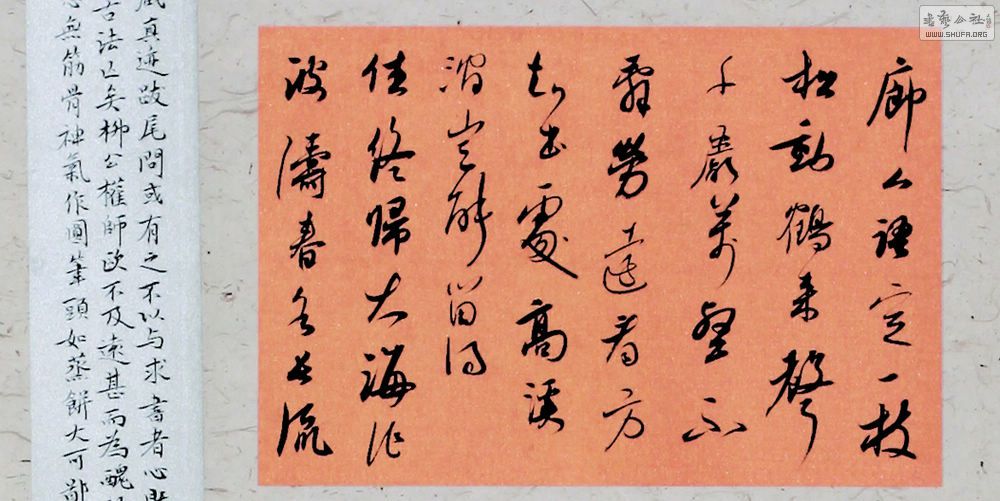 廊人語定一枝
松動鶴来聲
千巖萬壑不
辞勞遠看方
知出處高溪
澗豈能留得
住終歸大海作
波濤春長流
真迹跋尾間或有之不以与求書者心
古法亡矣柳公權師欧不及遠甚而為醜
無筋骨神氣作圓筆頭如蒸餅大可鄙
書藝公社
WWW.SHUFA.ORG